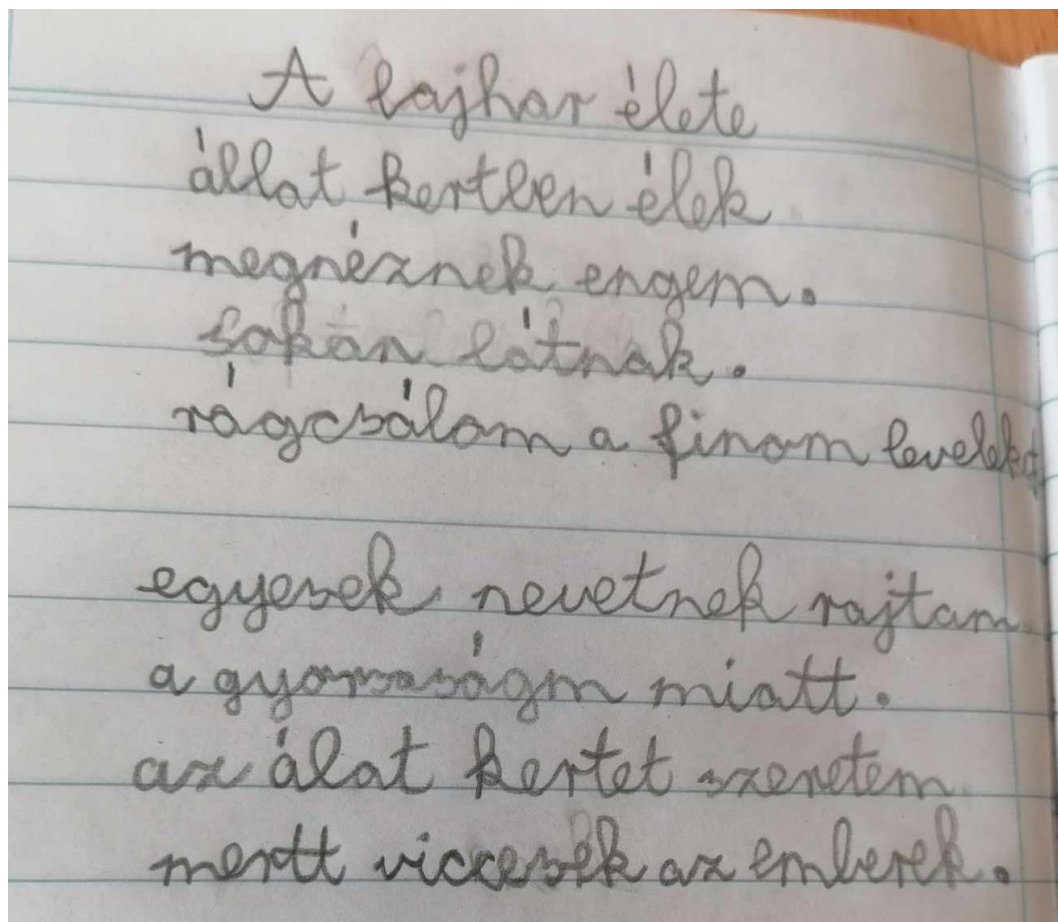 A lajhar élete
állat kertben élek
megnéznek engem.
sokan látnak.
rágcsálom a finom leveleket
egyesek nevetnek rajtam
a gyorsaságm miatt.
az álat kertet szeretem
mertt viccesek az emberek.